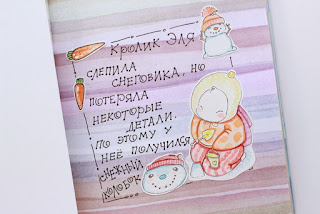 Кролик Эля
слепила
снеговика, но
потеряла
некоторые
детали.
по этому у
неё получился
снежный
колобок